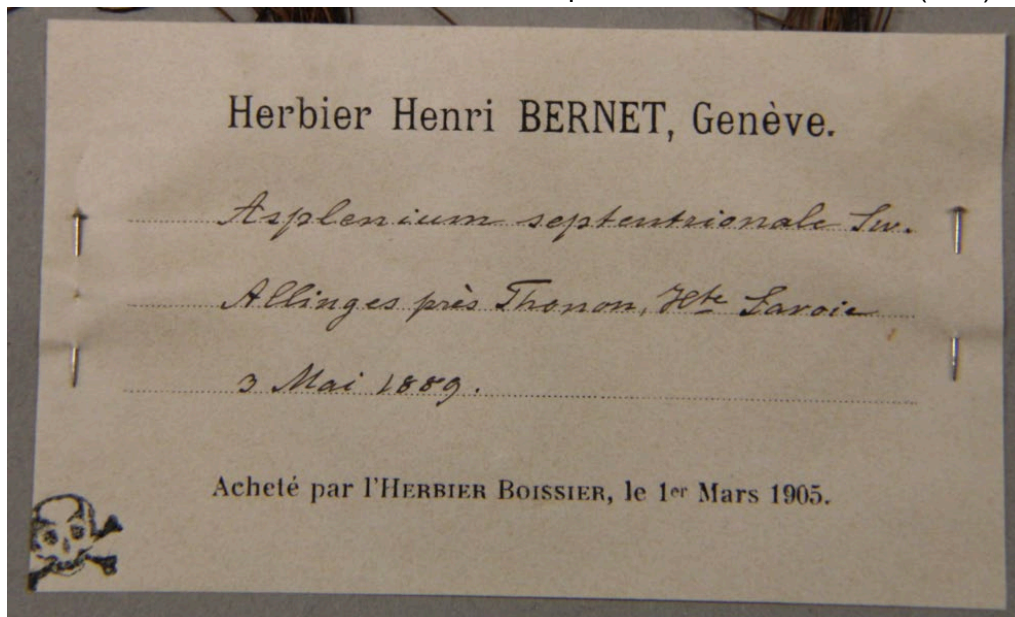 Herbier Henri BERNET, Genève.
Asplenium septentrionale Sw.
Allinges près Thonon, Hte Savoie
3 Mai 1889.
Acheté par l'HERBIER BOISSIER, le 1er Mars 1905.